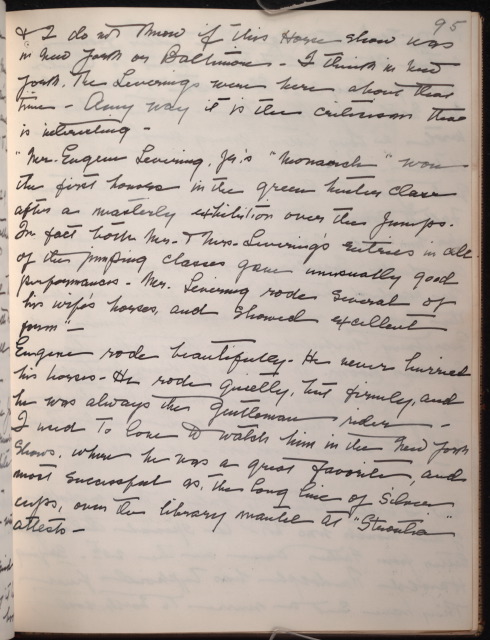 95
& I do not know if this Horse show was
in New York or Baltimore - I think in New
York. The Leverings were here about that
time - Any way it is the criticism that
is interesting -
"Mr. Eugene Levering, Jr's "Monarch" won
the first honors in the green hunter class
after a masterly exhibition over the jumps.
In fact both Mr. & Mrs. Levering's entries in all
of the jumping classes gave unusually good
performances - Mr. Levering rode several of
his wife's horses, and showed excellent
form" -
Eugene rode beautifully - He never hurried
his horses - He rode quietly, but firmly, and
he was always the Gentleman rider -
I used to love to watch him in the New York
Shows, where he was a great favorite, and
most successful as, the long line of Silver
cups, over the library mantel at "Strontia"
attests -